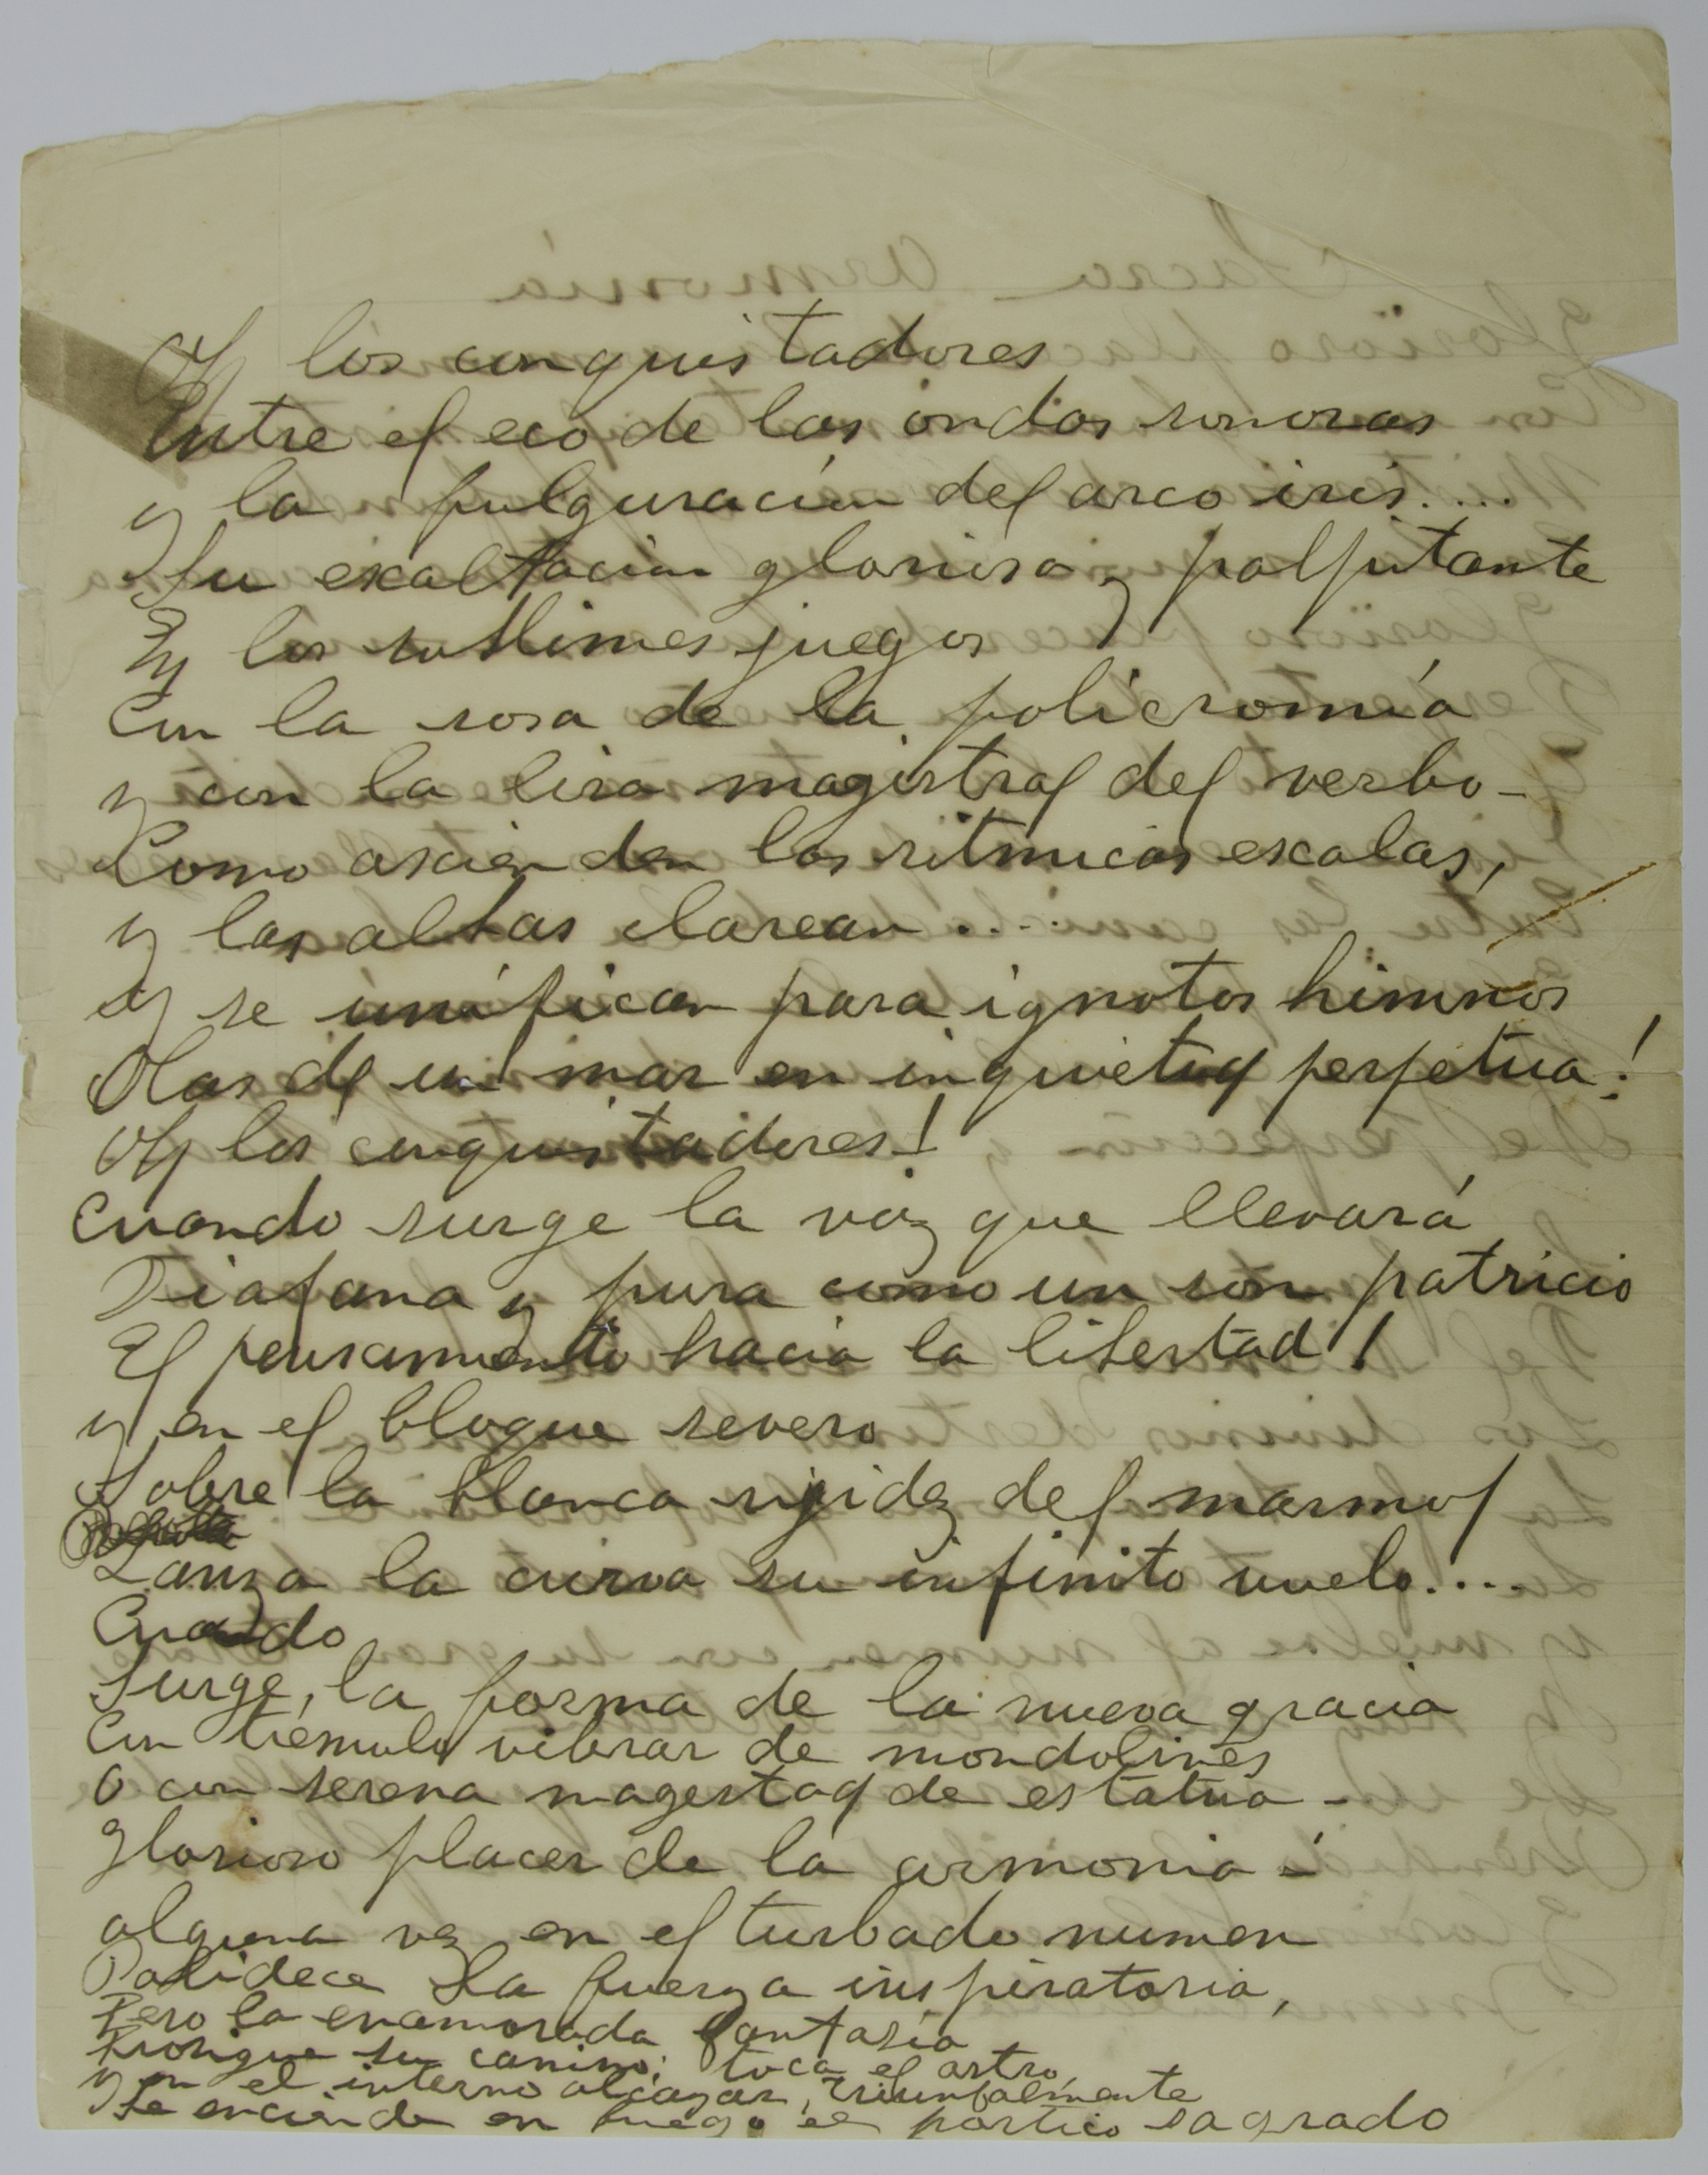 Oh los conquistadores
Entre el eco de las ondas sonoras
y la fulguración del arco iris....
Su exaltación gloriosa y palpitante
En los sublimes juegos
Con la rosa de la policromía
y con la lira magistral del verbo -
Como ascienden las ritmicas escalas,
y las altas clarean ....
y se unifican para ignotos himnos
Olas de un mar en inquietud perpetua!
Oh los conquistadores!
Cuando surge la voz que llevará
Diafana y pura como un son patricio
El pensamiento hacia la libertad!
y en el bloque severo
Sobre la blanca rigidez del marmol
Lanza la curva su infinito vuelo....
Cuando
Surge, la forma de la nueva gracia
Con trémulo vibrar de mondolines
O con serena magestad de estatua -
Glorioso placer de la armonia -
alguna vez en el turbado numen
Palidece la fuerza inspiratoria,
Pero la enamorada fantasía
Prosigue su camino; toca el astro
y en el interno alcazar, triunfalmente
Se enciende en fuego el portico sagrado